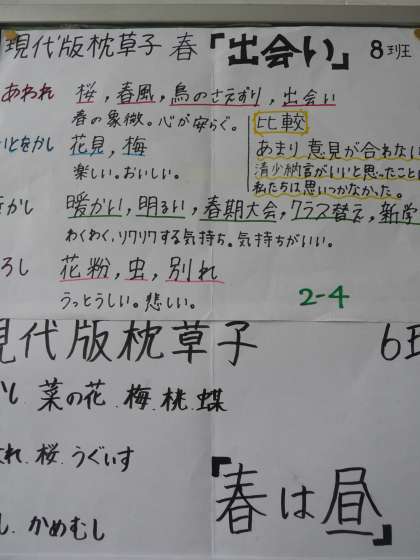 現代版枕草子 春「出会い」 8班
あわれ 桜，春風，鳥のさえずり，出会い
春の象徴。心が安らぐ。
比較
いとをかし 花見，梅
楽しい。おいしい。
あまり意見が合わない
清少納言がいいと思ったことに
私たちは思いつかなかった。
をかし 暖かい，明るい，春期大会，クラス替え，新学
わくわく，ソワソワする気持ち。気持ちがいい。
ろし 花粉，虫，別れ
うっとうしい。悲しい。
2-4
現代版枕草子 6班
かし 菜の花．梅．桃．蝶
われ．桜．うぐいす
し．かめむし
『春は昼』